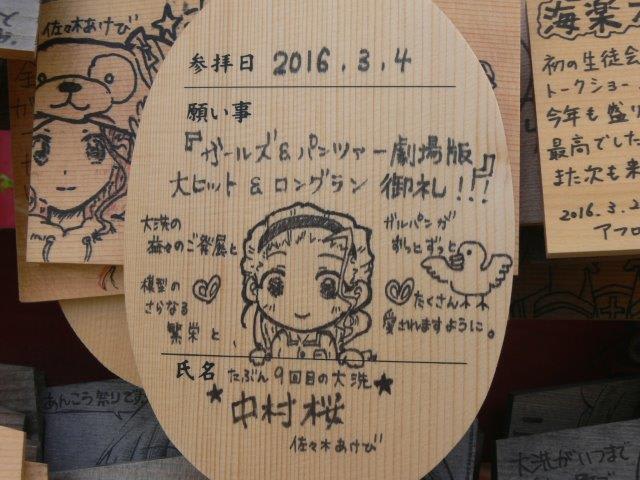 佐々木あけび
参拝日 2016.3.4
願い事
『ガールズ&パンツァー劇場版』
大ヒット&ロングラン御礼!!!
大洗の
益々のご発展と
模型の
さらなる
繁栄と、
ガルパンが
ずっとずっと
たくさん
愛されますように。
氏名 たぶん9回目の大洗
★中村桜★
佐々木あけび
海楽
初の生徒会
トークショー
今年も盛り
最高でした
また次も来
2016.3.2
アフロ
あんこう祭りです
大洗がいつまで